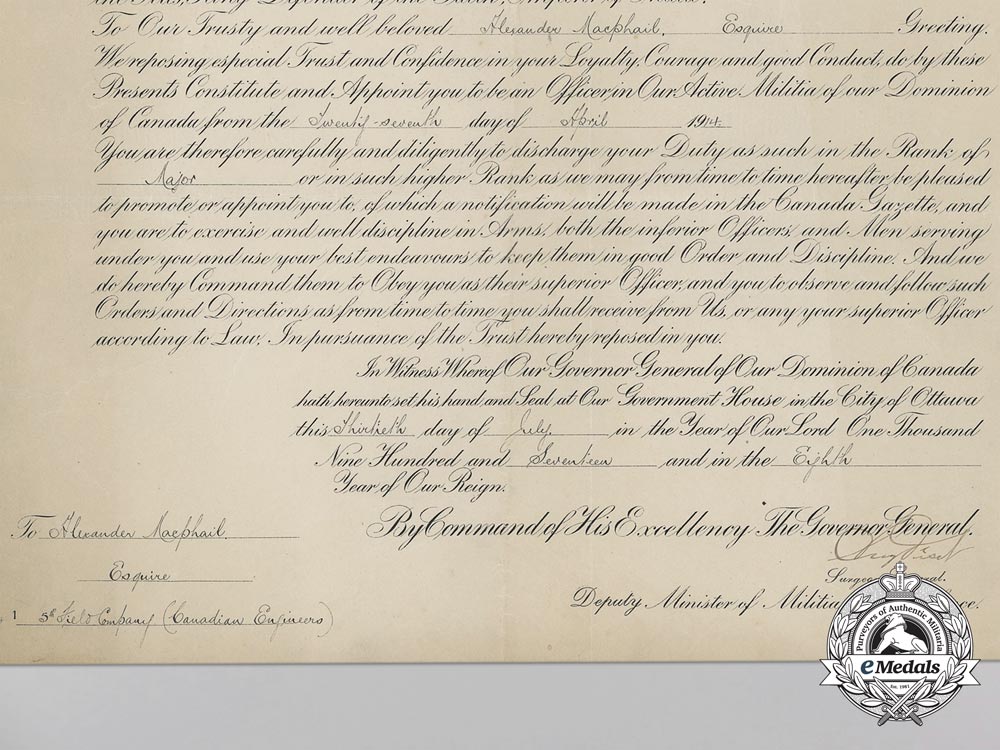 To Our Trusty and well beloved Alexander Macphail, Esquire Greeting.
We reposing especial Trust and Confidence in your Loyalty, Courage and good Conduct, do by these
Presents Constitute and Appoint you to be an Officer in Our Active Militia of our Dominion
of Canada from the Twenty-seventh day of April 1914.
You are therefore carefully and diligently to discharge your Duty as such in the Rank of
Major or in such higher Rank as we may from time to time hereafter be pleased
to promote or appoint you to, of which a notification will be made in the Canada Gazette, and
you are to exercise and well discipline in Arms, both the inferior Officers and Men serving
under you and use your best endeavours to keep them in good Order and Discipline. And we
do hereby Command them to Obey you as their superior Officer, and you to observe and follow such
Orders and Directions as from time to time you shall receive from Us, or any your superior Officer
according to Law, In pursuance of the Trust hereby reposed in you.
In Witness Whereof Our Governor General of Our Dominion of Canada
hath hereunto set his hand and Seal at Our Government House in the City of Ottawa
this Thirtieth day of July in the Year of Our Lord One Thousand
Nine Hundred and Seventeen and in the Eighth
Year of Our Reign.
By Command of His Excellency The Governor General.
To Alexander Macphail
Esquire
1 5th Field Company (Canadian Engineers)
Deputy Minister of Militia
Purveyors of Authentic Militaria
eMedals
Est. 1981